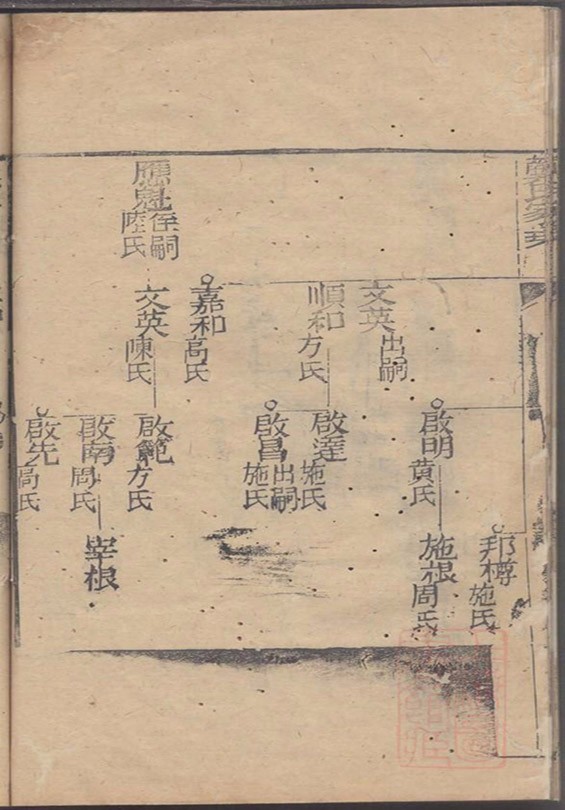 應魁
侄嗣
陸氏
文英
出嗣
順和
方氏
嘉和
高氏
文英
陳氏
啟明
黄氏
啟達
施氏
啟昌
出嗣
施氏
啟範
方氏
啟南
周氏
啟先
高氏
邦樽
施氏
施根
周氏
宰根